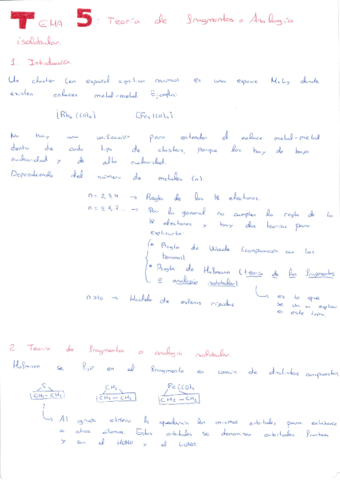 TEMA 5: Teoría de fragmentos o Analogía
isolobular.
1. Introducción
Un cluster (en español es una especie MxLy donde
existen enlaces metal-metal Ejemplo:
[Rh6(CO)16] [Fe3(CO)12]
No hay una unificación para entender el enlace metal-metal
dentro de cada tipo de clusters, porque los hay de baja
nuclearidad y de alta nuclearidad.
Dependiendo del número de metales (n):
n = 2,3,4 → Regla de los 18 electrones.
n = 5,6,7... → Por lo general no cumplen la regla de los
18 electrones y hay dos teorías para
explicarlo:
* Regla de Wade (comparación con los
boranos)
* Regla de Hoffmann (teoría de los fragmentos
o analogía isolobular)
↳ es lo que
se va a explicar
en este tema.
n>10 → Modelo de esferas rígidas
2. Teoría de fragmentos o analogía isolobular.
Hoffmann se fijó en el fragmento en común de distintos compuestos.
S CH2 Fe(CO)4
CH2-CH2 CH2-CH2 CH2-CH2
↳ Al grupo etileno le quedarían los mismos orbitales para enlazarse
a otros átomos. Estos orbitales se denominan orbitales frontera
y son el HOMO y el LUMO.